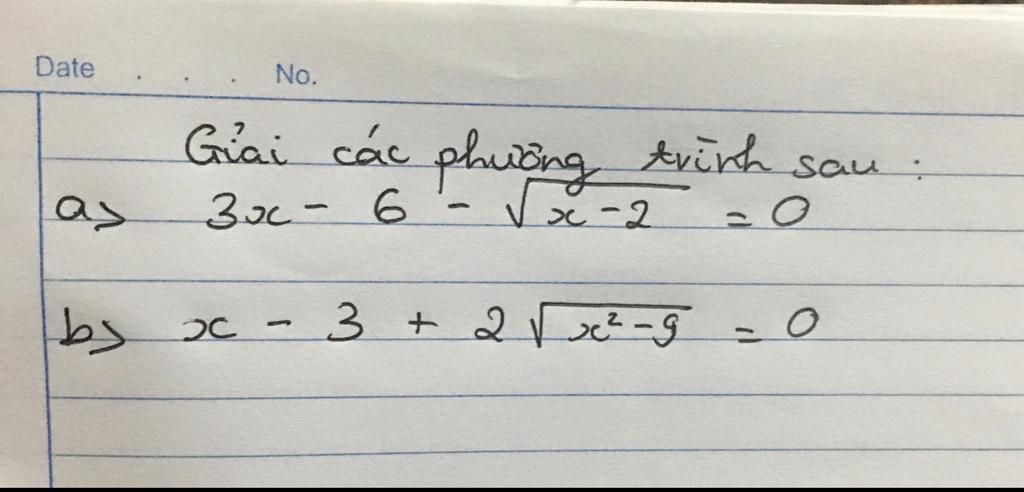 Date . . . No.
Giải các phương trình sau :
a> 3x - 6 - √x-2 = 0
b> x - 3 + 2√x²-9 = 0